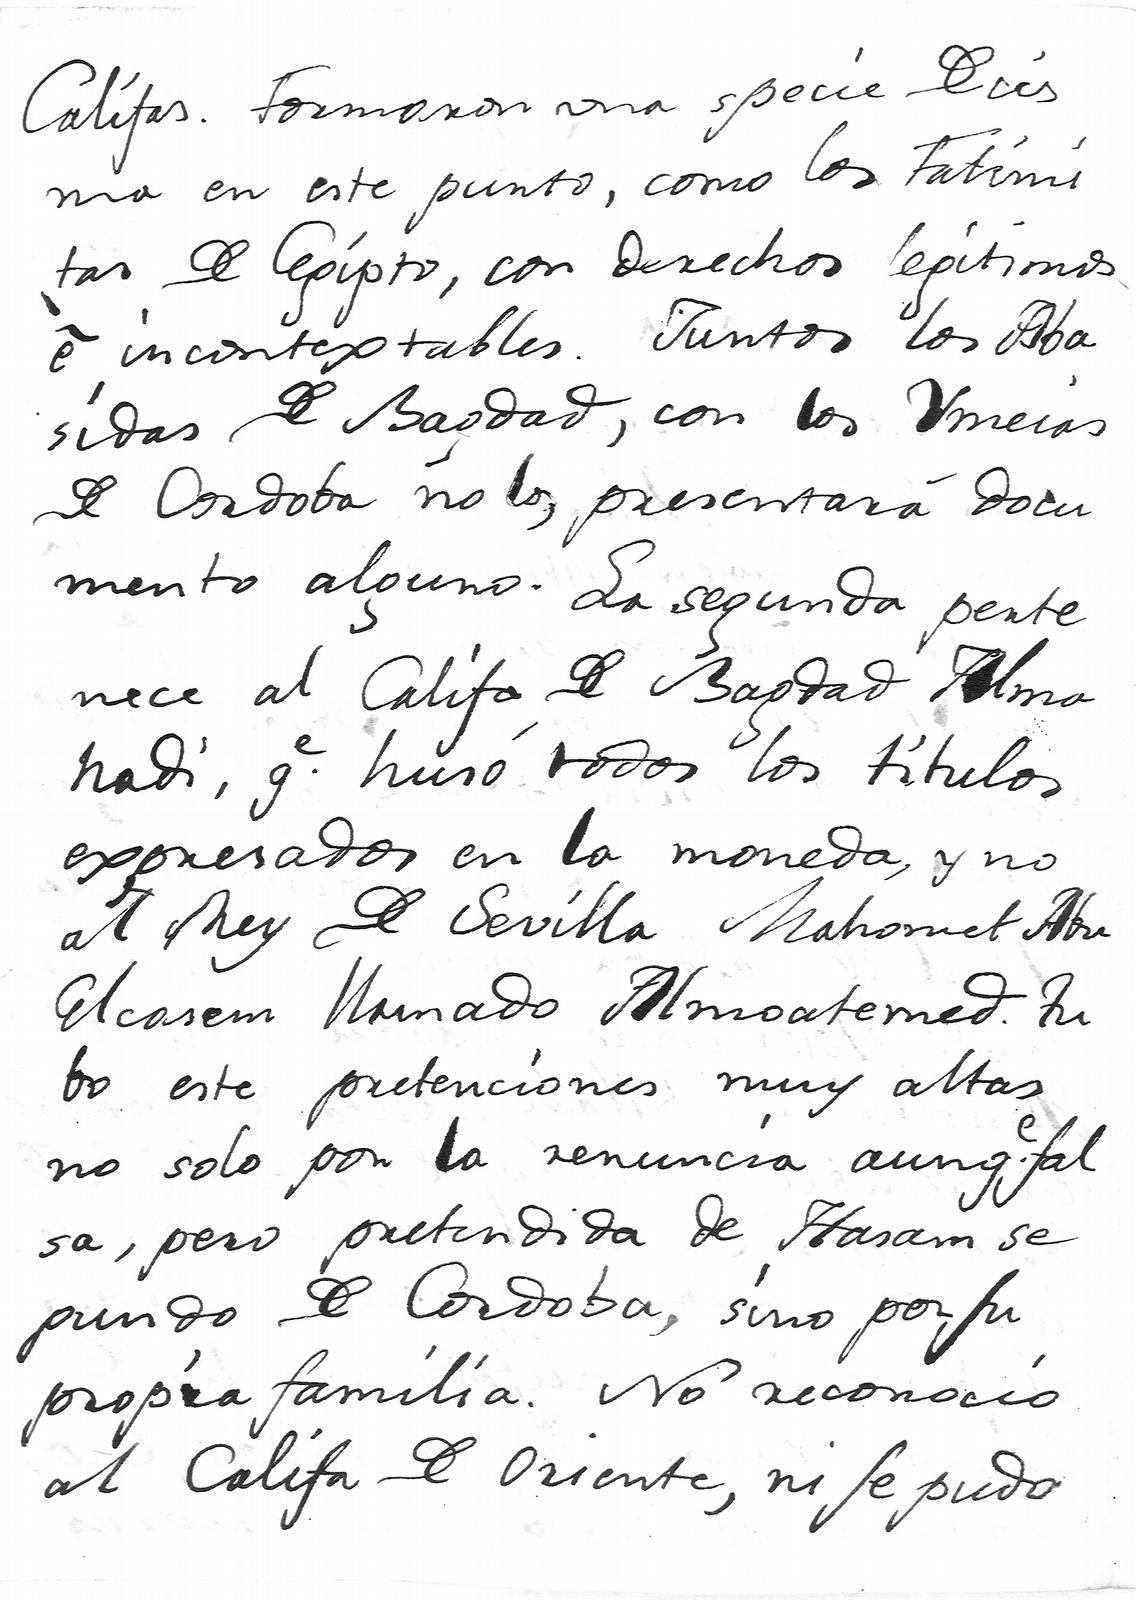 Califas. Formaron una specie De cis
ma en este punto, como los Fatimi
tas De Egipto, con derechos legitimos
è incontextables. Juntos los Aba
sidas De Bagdad, con los Vmeias
De Cordoba no los presentará docu
mento alguno. La segunda perte
nece al Califa De Bagdad Alma
hadi, qe. husó todos los titulos
expresados en la moneda, y no
al Rey De Sevilla Mahomet Abu
Elcasem llamado Almoatemed. Tu
bo este pretenciones muy altas
no solo por la renuncia aunqe. fal
sa, pero pretendida de Hasam se
gundo De Cordoba, sino por su
propia familia. No reconoció
al Califa De Oriente, ni se pudo